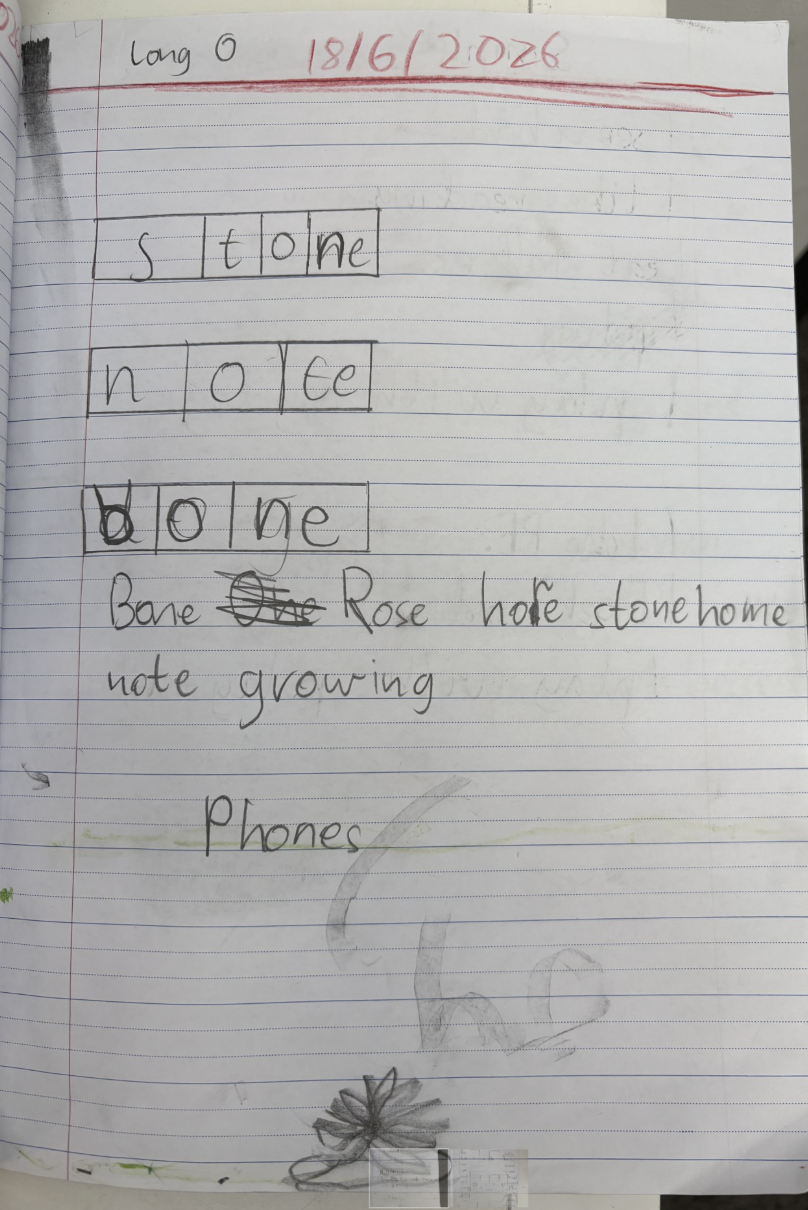 Long O 18/6/2026
s t o ne
n o te
b o ne
Bone One Rose hole stone home
note growing
Phones
ho